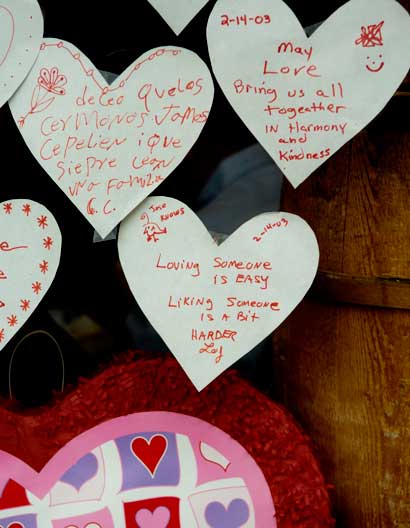 deceo quelos
cermanos Jamas
cepelien ique
siepre cean
una familia
C.C.
2-14-03
may
Love
Bring us all
togeather
IN Harmony
and
Kindness
Jose
Knows
2-14-03
Loving Someone
is EASY
Liking Someone
is A Bit
HARDER